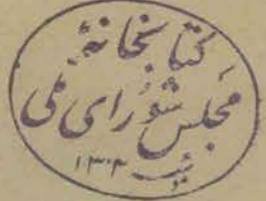 کتابخانهٔ
مجلس شورای ملی
۱۳۰۴